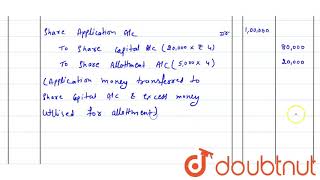 Share Application A/c Dr 1,00,000
To Share Capital A/c (20,000 x ₹ 4) 80,000
To Share Allotment A/c (5,000 x 4) 20,000
(Application money transferred to
Share Capital A/c & excess money
utilised for allotment)
doubtnut